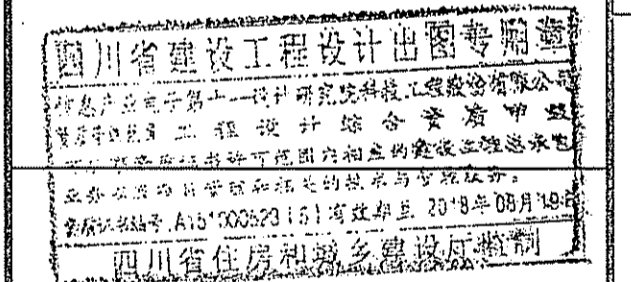 四川省建设工程设计出图专用章
信息产业电子第十一设计研究院科技工程股份有限公司
资质等级及业务 工程设计综合资质甲级
可从事资质证书许可范围内相应的建设工程总承包
业务以及项目管理和相关的技术与管理服务。
资质证书编号:A151000523(6) 有效期至 2018年08月19日
四川省住房和城乡建设厅监制